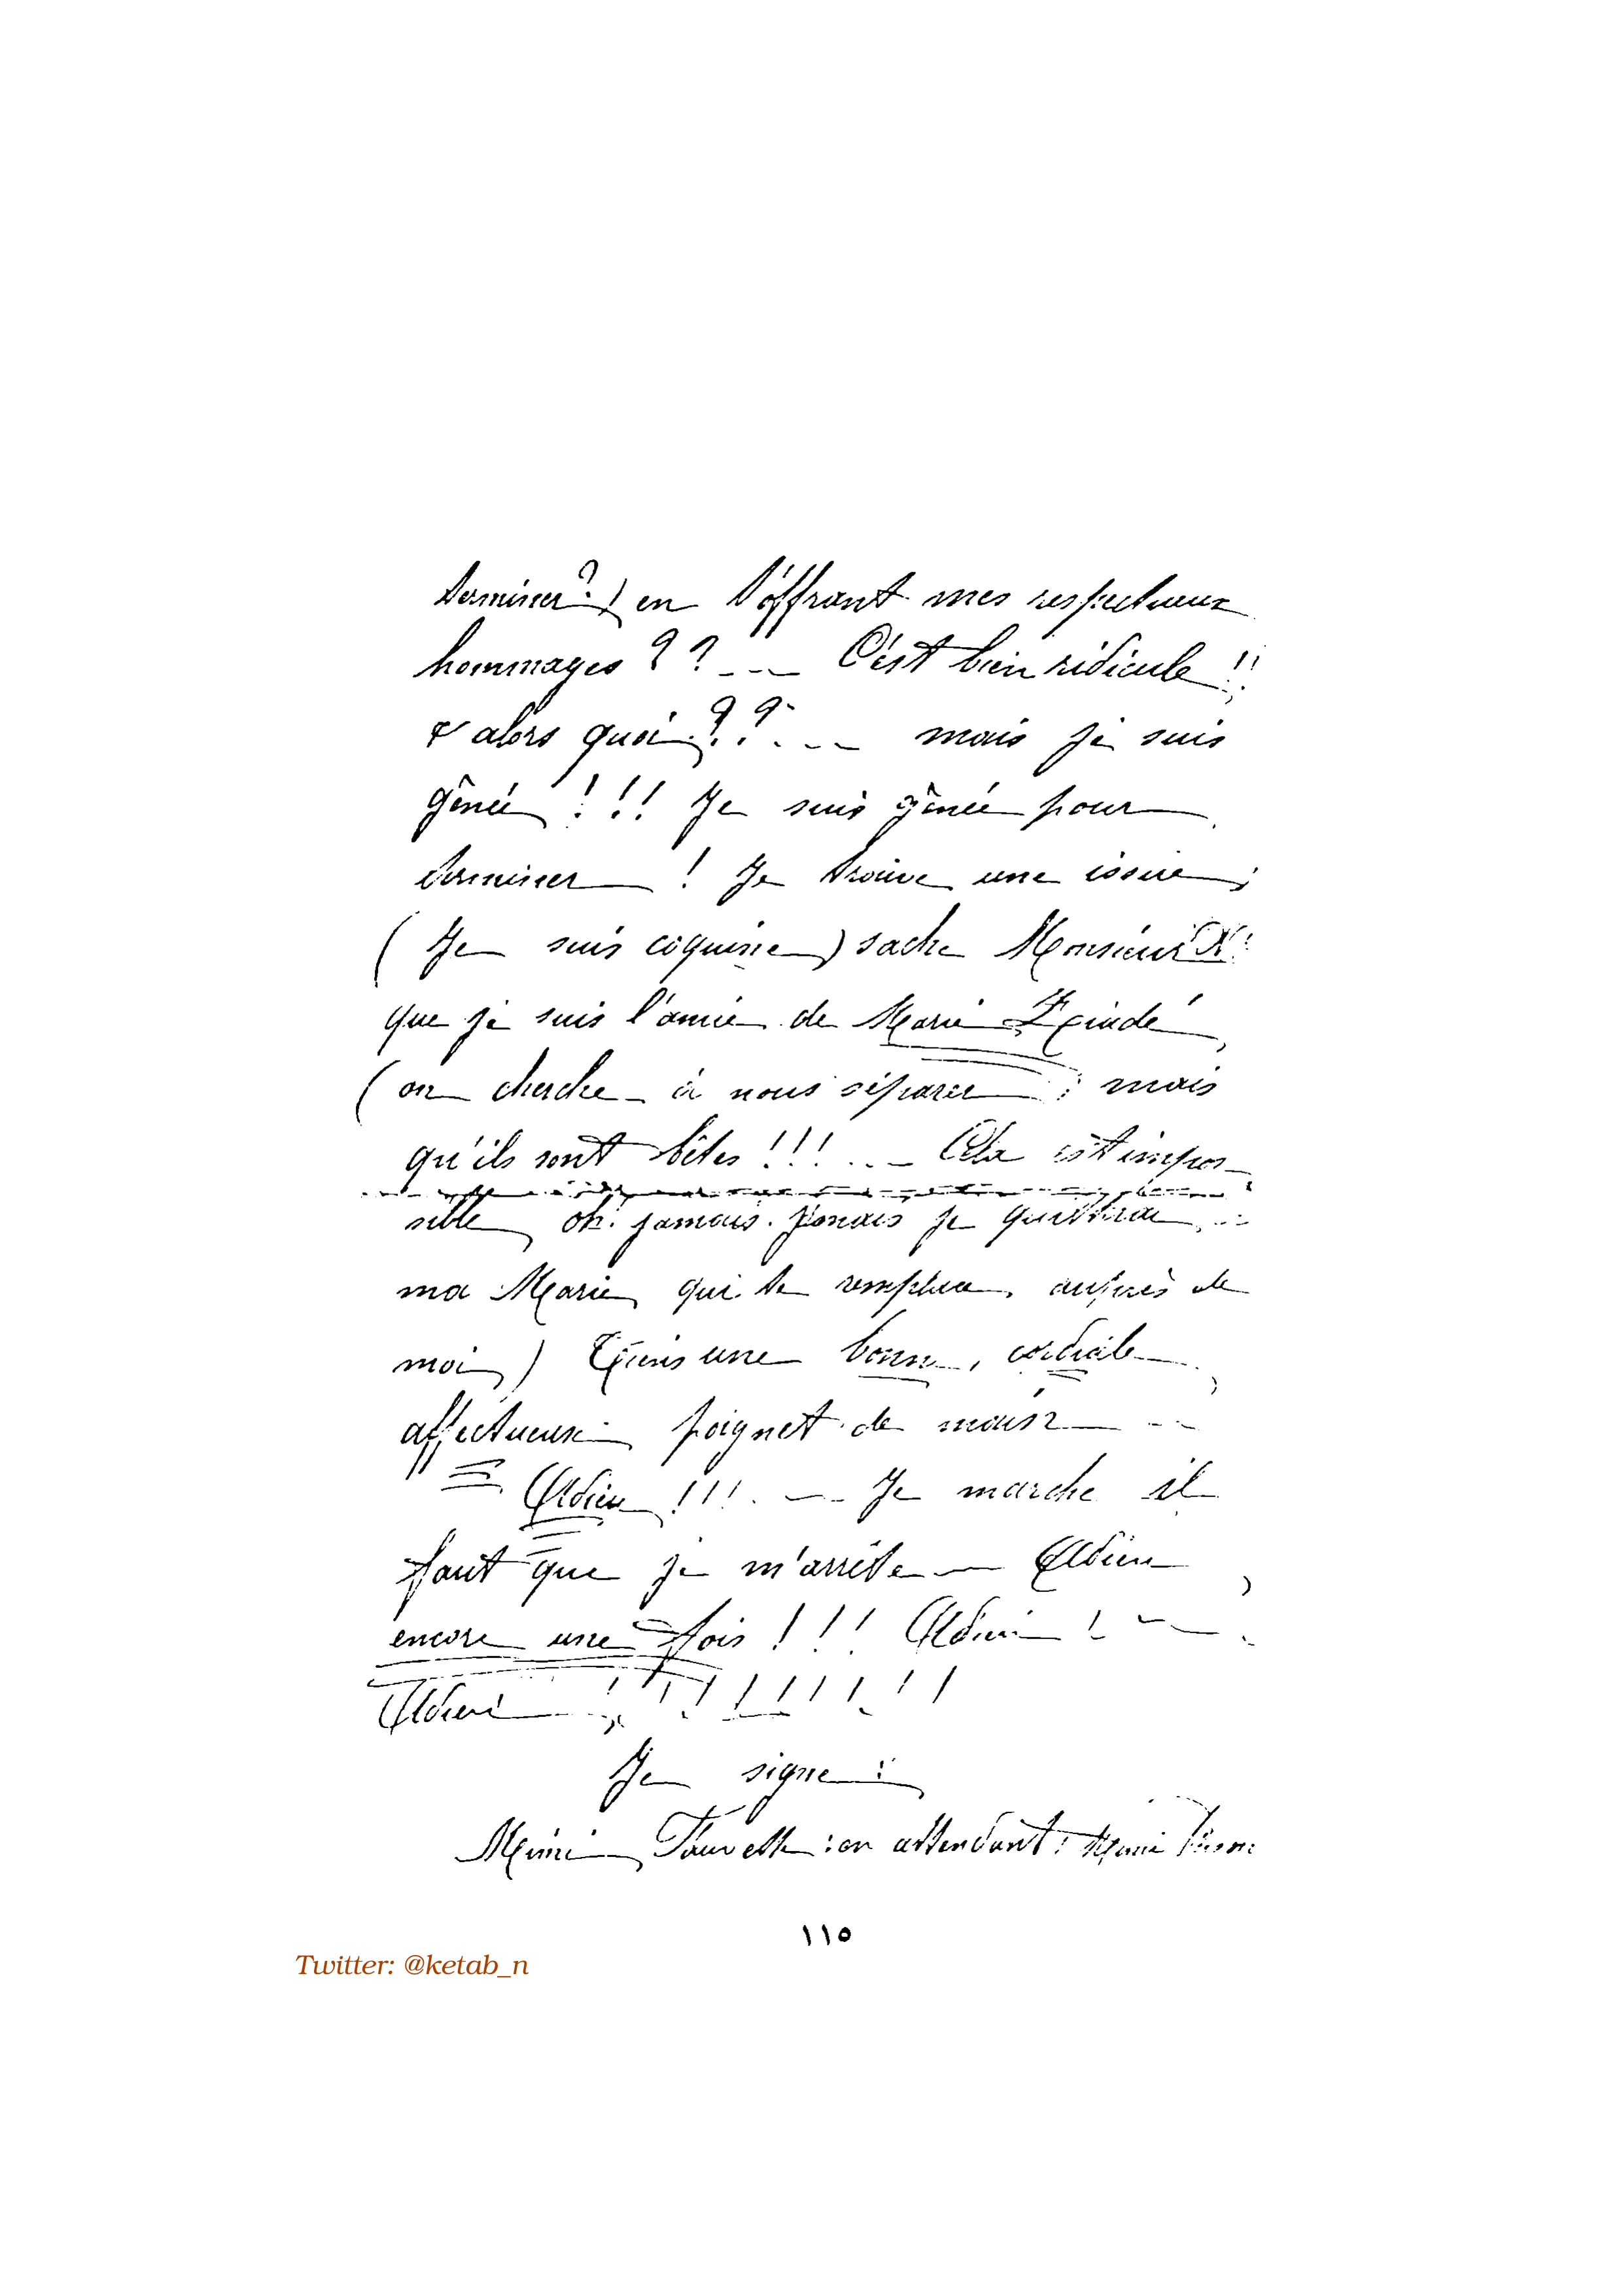 terminer?) en t'offrant mes respectueux
hommages ? ? - - — C'est bien ridicule !!
& alors quoi ? ? . - — mais je suis
gênée ! ! ! Je suis gênée pour
terminer ! Je trouve une issue ;
( Je suis coquine ) sache Monsieur
que je suis l'amie de Marie
( on cherche - à nous séparer ; mais
qu'ils sont bêtes !!! . . — Cela est impos—
sible oh! jamais. jamais je quitterai . . -
ma Marie qui te remplace auprès de
moi ) Tiens une bonne, cordiale
affectueuse poignet de main — - -
Adieu !!! . — - Je marche il
faut que je m'arrête — Adieu
encore une fois ! ! ! Adieu ! - —
Adieu ! ! ! ! ! ! ! ! ! !
Je signe :
Mimi : en attendant :
١١٥
Twitter: @ketab_n